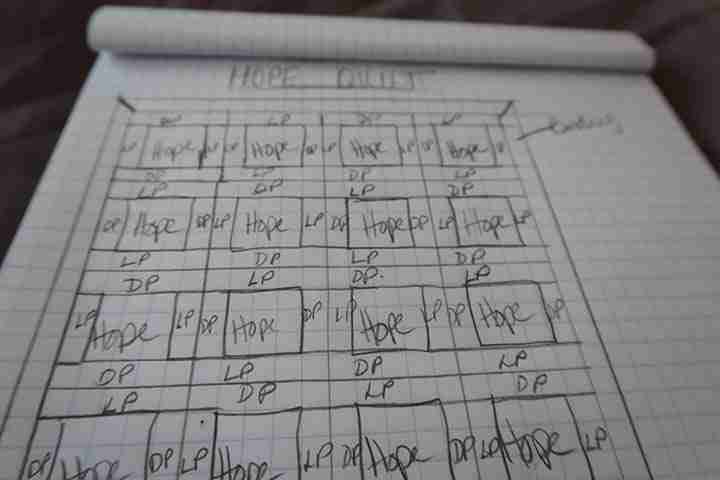 HOPE QUILT
LP DP LP
Hope Hope Hope Hope
DP LP DP LP
LP DP LP DP
DP Hope DP LP Hope LP DP Hope DP LP Hope LP
LP DP LP DP
DP LP DP. LP
LP Hope LP DP Hope DP LP Hope LP DP Hope DP
DP LP DP LP
LP DP LP DP
DP Hope DP LP Hope LP DP Hope DP LP Hope LP